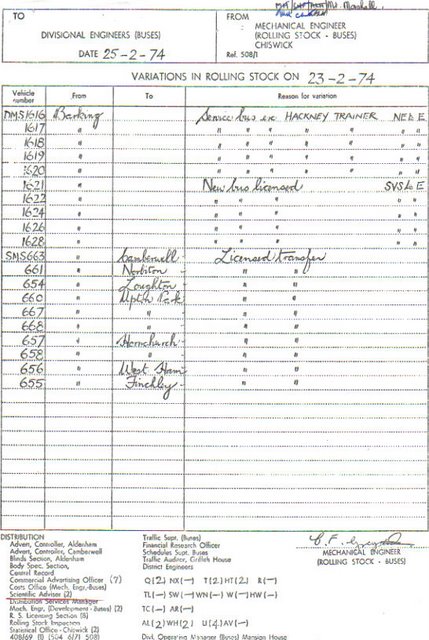 TO
DIVISIONAL ENGINEERS (BUSES)
DATE 25-2-74
FROM
MECHANICAL ENGINEER
(ROLLING STOCK - BUSES)
CHISWICK
Ref. 508/1
VARIATIONS IN ROLLING STOCK ON 23-2-74
Vehicle number From To Reason for variation
DMS1616 Barking Service bus ex HACKNEY TRAINER NE to E
1617 " " " " " " "
1618 " " " " " " "
1619 " " " " " " "
1620 " " " " " " "
1621 " New bus licensed SVS to E
1622 " " " " " "
1624 " " " " " "
1626 " " " " " "
1628 " " " " " "
SMS663 " Camberwell Licensed transfer
661 " Norbiton " "
654 " Loughton " "
660 " Upton Park " "
667 " " " "
668 " " " "
657 " Hornchurch " "
658 " " " "
656 " West Ham " "
655 " Finchley " "
DISTRIBUTION
Advert, Controller, Aldenham
Advert, Controller, Camberwell
Blinds Section, Aldenham
Body Spec. Section,
Central Record
Commercial Advertising Officer (7)
Costs Office (Mech. Engr. Buses)
Scientific Adviser (2)
Distribution Services Manager
Mech. Engr. (Development - Buses) (2)
R. S. Licensing Section (8)
Rolling Stock Inspectors
Statistical Office - Chiswick (2)
408/69 (1) (504 6/71 508)
Traffic Supt. (Buses)
Financial Research Officer
Schedules Supt. Buses
Traffic Auditor, Griffith House
District Engineers
Q(2) NX(-) T(2) HT(2) R(-)
TL(-) SW(-) WN(-) W(-) HW(-)
TC(-) AR(-)
AL(2) WH(2) U(4) AV(-)
Divl. Operating Manager (Buses) Mansion House
MECHANICAL ENGINEER
(ROLLING STOCK - BUSES)